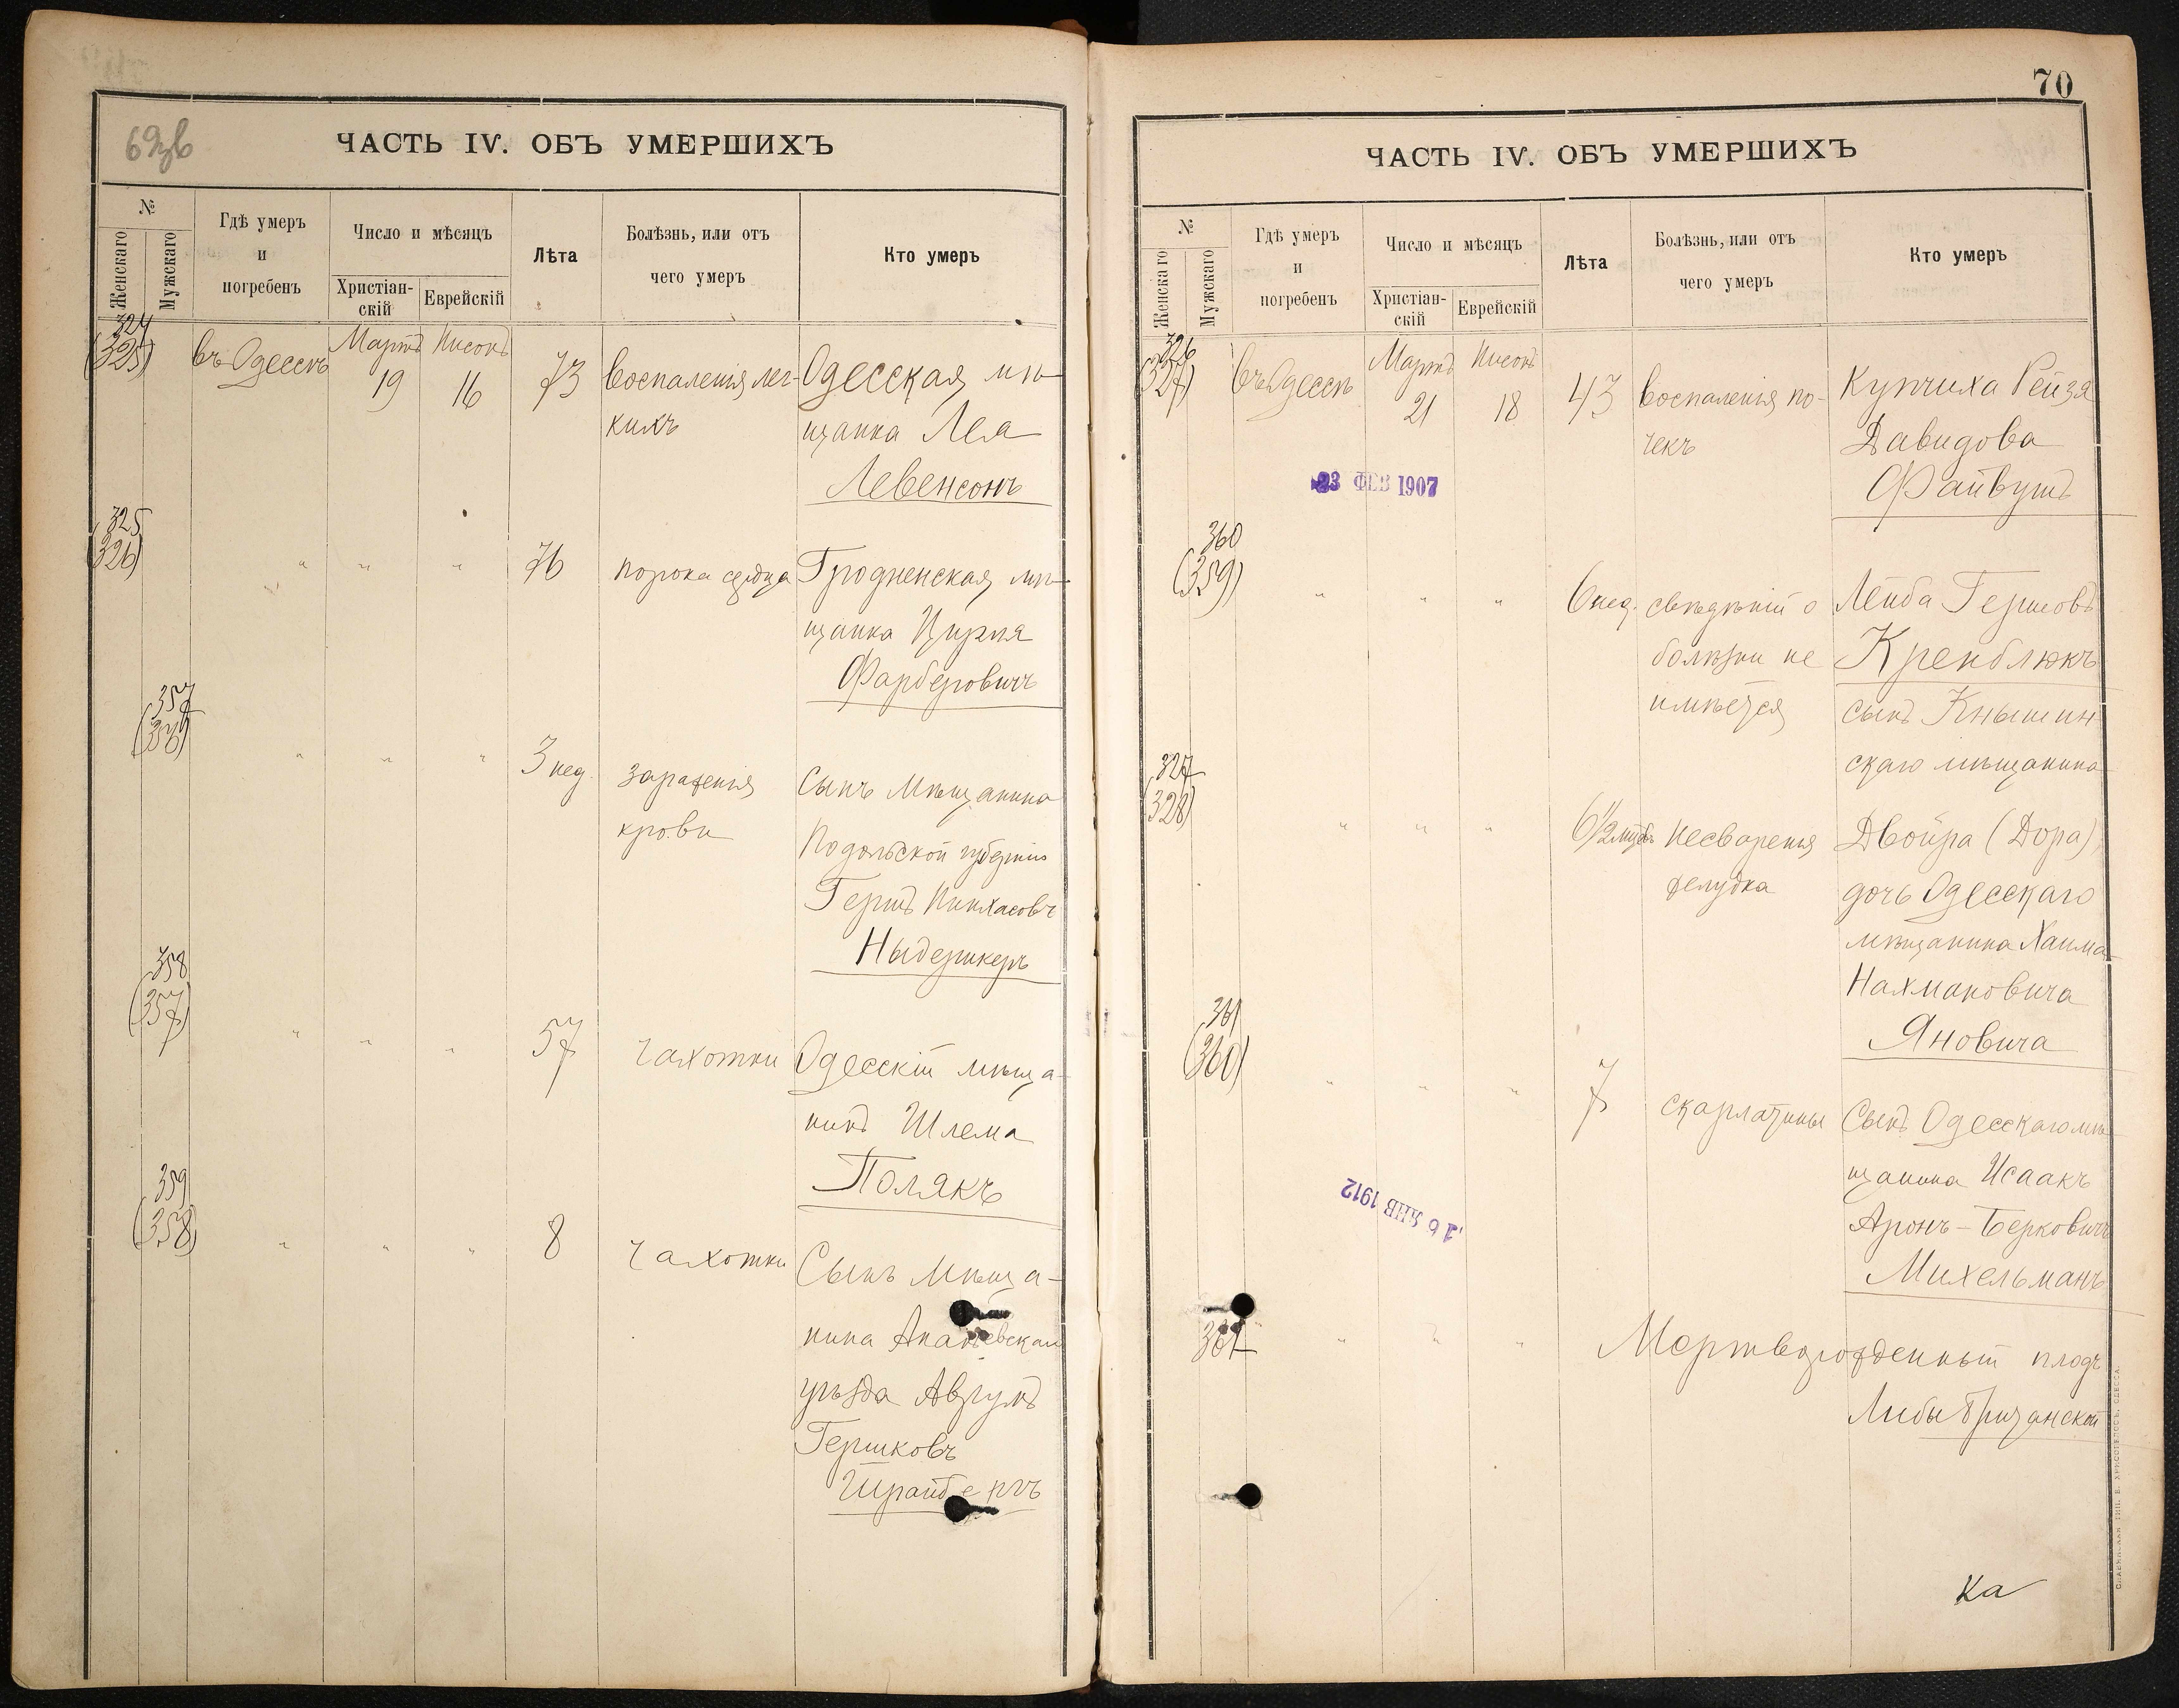 69зв
ЧАСТЬ IV. ОБЪ УМЕРШИХЪ
№
Женскаго
Мужскаго
Гдѣ умеръ
и
погребенъ
Число и мѣсяцъ
Христіан-
скій
Еврейскій
Лѣта
Болѣзнь, или отъ
чего умеръ
Кто умеръ
324
(325)
въ Одессѣ
Мартъ
19
Нисонъ
16
73
воспаленія лег-
кихъ
Одесская мѣ-
щанка Лея
Левенсонъ
325
(326)
" " "
76
порока сердца
Гродненская мѣ-
щанка Цирля
Фарберовичъ
357
" " "
3 нед.
зараженія
крови
Сынъ Мѣщанина
Подольской губерніи
Гершъ Пинхасовъ
358
(357)
" " "
57
чахотки
Одесскій мѣща-
нинъ Шлема
Полякъ
359
(358)
" " "
8
чахотки
Сынъ мѣща-
нина Ананьевскаго
уѣзда Аврумъ
Гершковъ
Шрайбергъ
70
ЧАСТЬ IV. ОБЪ УМЕРШИХЪ
№
Женскаго
Мужскаго
Гдѣ умеръ
и
погребенъ
Число и мѣсяцъ
Христіан-
скій
Еврейскій
Лѣта
Болѣзнь, или отъ
чего умеръ
Кто умеръ
326
(327)
въ Одессѣ
Мартъ
21
Нисонъ
18
43
воспаленія по-
чекъ
Купчиха Рейзя
Давидова
Файвушъ
23 ФЕВ 1907
360
(359)
" " "
6 нед.
свѣдѣній о
болѣзни не
имѣется
Лейба Гершовъ
Кренблюкъ
сынъ Кнышин-
скаго мѣщанина
327
(328)
" " "
6 1/2 мѣс.
несваренія
желудка
Двойра (Дора)
дочь Одесскаго
мѣщанина Хаима
Нахмановича
Яновича
361
(360)
" " "
7
скарлатины
Сынъ Одесскаго мѣ-
щанина Исаакъ
Аронъ-Берковичъ
Михельманъ
16 ЯНВ 1912
361
" " "
Мертворожденный плодъ
Либы
ка